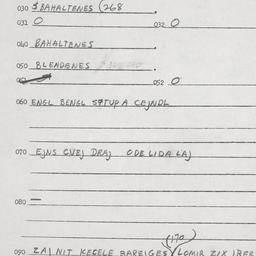 030 $ BAHALTENES (268
031 0 032 0
040 BAHALTENES
050 BLEADENES
052 0
060 ENGL BENGL STTUPA CEJNDL
070 EJNS CVEJ DRAJ ODE LIDA LAJ
080 —
(170)
090 ZAJ NIT KEGELE BAREJGES LOMIR ZIX IBER